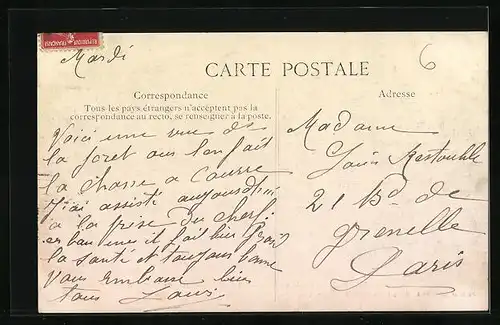 Mardi
6
CARTE POSTALE
Correspondance
Tous les pays étrangers n'acceptent pas la
correspondance au recto, se renseigner à la poste.
Adresse
Voici une vue de
la foret ou l'on fait
la chasse a Courre
J'ai assisté aujourd'hui
a la prise du cerf
il fait bien froid
la santé et toujours bonne
Vous embrasse bien
tous Louis
Madame
Louis
21 Bd de
Grenelle
Paris